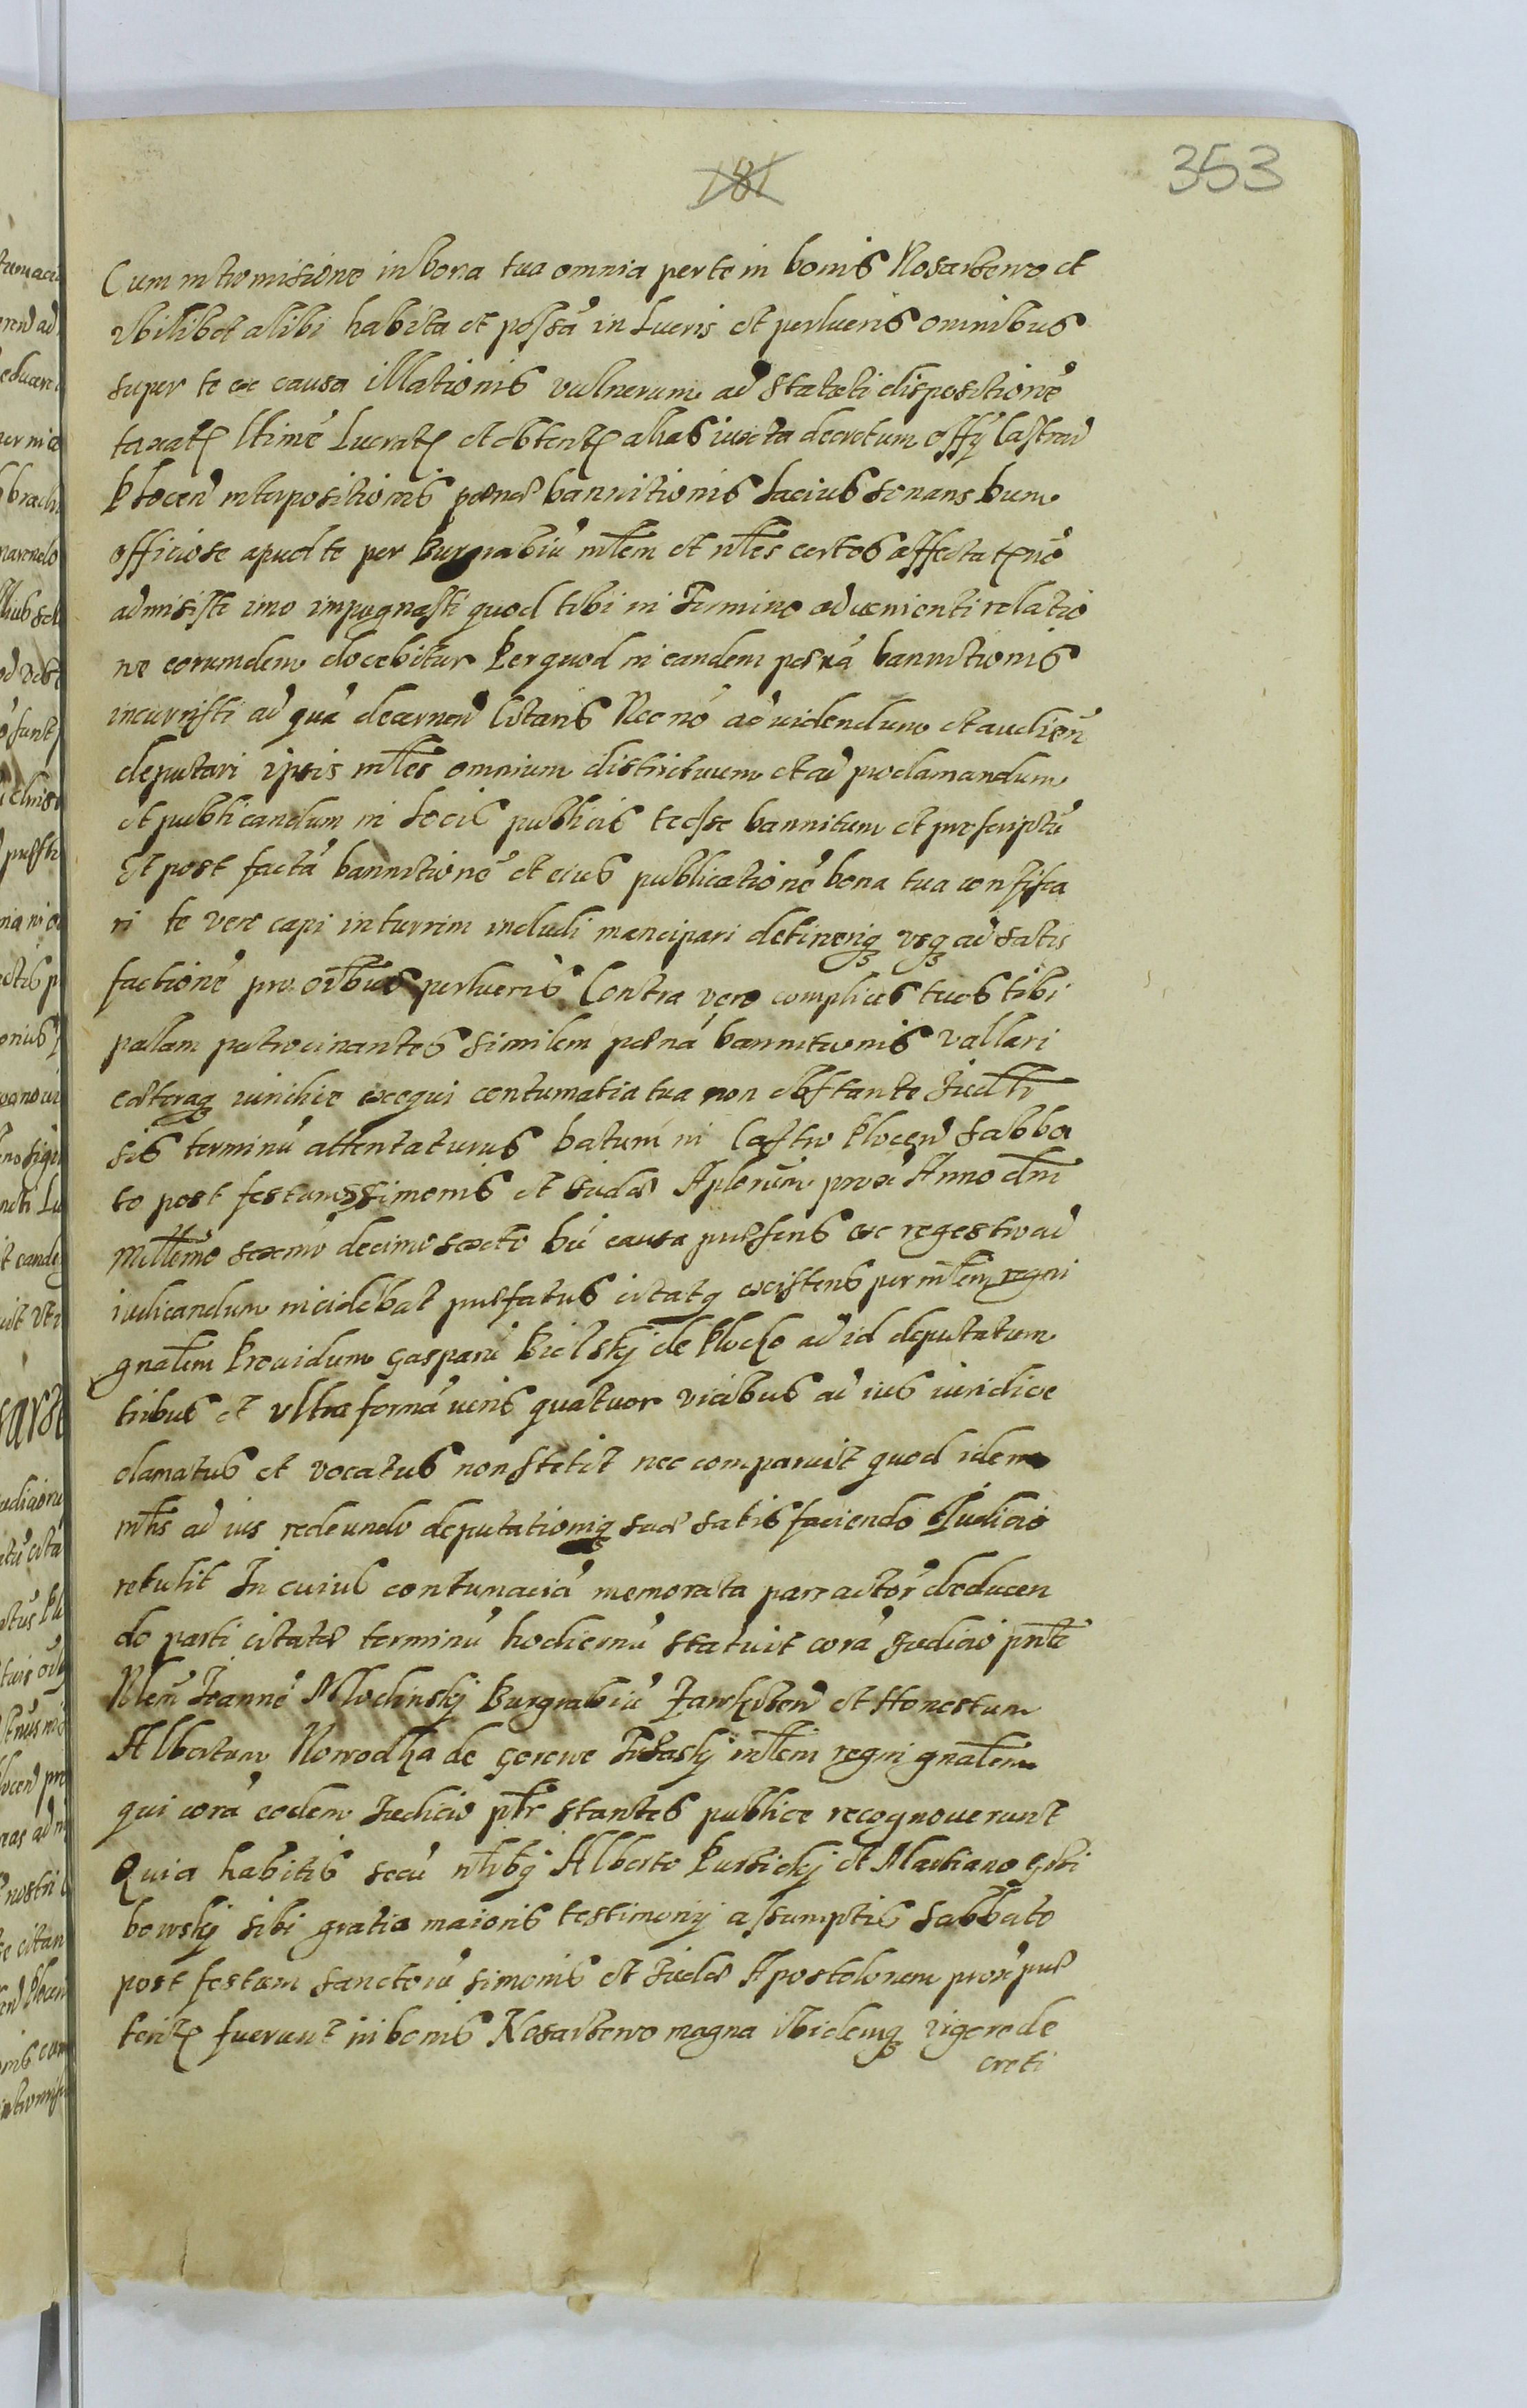 181
353
Cum intromissione in bona tua omnia per te in bonis Kosarzewo et
ubilibet alibi habita et possā in lucris et perlucris omnibus
super te ex causa illationis vulnerum ad statuti dispositionē
taxatꝭ ltimē lucratꝭ et obtentꝭ alias iuxta decretum offÿ Castrēn
Plocen̄ interpositionis poenae bannitionis lacius sonans tum
officiose apud te per Burgrabiū mlem et nles certos affectatꝭ nō
admisisti imo impugnasti quod tibi in Termino advenienti relatio
ne eorumdem docebitur Per quod in eandem poenā bannitionis
incurristi ad quā decernen̄ Citaris Nec nō ad videndum et audien̄
deputari ipsis mles omnium districtuum et ad proclamandum
et publicandum in locis publicis te esse bannitum et proscriptū
Et post factā bannitionē et eius publicationē bona tua confisca
ri te vero capi in turrim includi mancipari detineriqꝫ vsqꝫ ad satis
factionē pro oībus perlucris Contra vero complices tuos tibi
palam patrocinantes similem poenā bannitionis vallari
caeteraqꝫ iuridice exequi contumatia tua non obstante Iudltr
sis terminū attentaturus Datum in Castro Plocen̄ Sabba
to post festum SSimonis et Iudae Aplorum prox̄ Anno dni
Millemo sexmo decimo sexto Dū causa praesens ex regestro ad
iudicandum incidebat praefatus citatꝰ existens per mlem regni
gnalem Prouidum Gasparū Bielskj de Plocko ad id deputatum
tribus et vltra formā iuris quatuor vicibus ad ius iuridice
clamatus et vocatus non stetit nec comparuit quod idem
mlis ad ius redeundo deputationiqꝫ suae satisfaciendo Iudicio
retulit In cuius contumaciā memorata pars actor̄ deducen
do parti citatae terminū hodiernū statuit corā Iudicio pnte
Nlem Ioannē Mlodinskj Burgrabiū Zawkrzen̄ et Honestum
Albertum Nowodka de mlem regni gnalem
qui corā eodem Iudicio pltr stantes publice recognoverunt
Quia habitis secū nlibꝰ Alberto Kursickj et Martiano Grzi
bowskj sibi gratia maioris testimonij assumptis Sabbato
post festum Sanctorū Simonis et Iudae Apostolorum prox̄ prae
teritꝭ fuerunt in bonis Kosarzewo magna ibidemqꝫ vigore de
creti